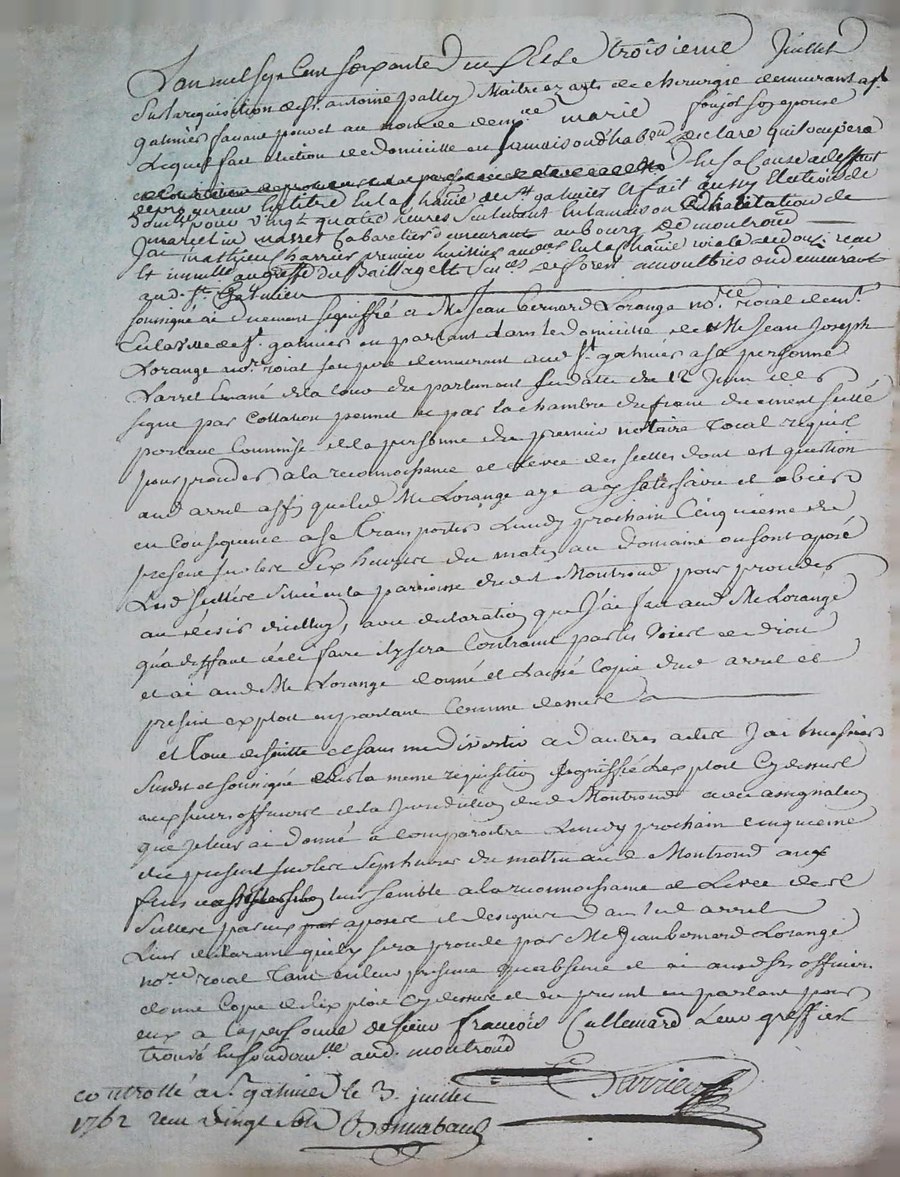 L'an mil sept cent soixante deux et le troisieme Juillet
Sur la requisition de Sr. antoine palley Maitre ez arts de chirurgie demeurant a St
galmier faisant pour et au nom de demlle marie poujol son epouse
Lequel fait election de domicille en sa maison d'habon declare quil occupera
en la Cause a deffaut
de procureur en titre en la chatnie de St galmier et fait aussy Election de
Domlle pour vingt quatre heures seulement en la maison d'habitation de
marcelin masset Cabaretier demeurant au bourg de montrond
Jai mathieu harrier premier huissier en la chatnie roiale
et immatle au greffe du Baillage et de forest a montbrison demeurant
aud. St Galmier
soussigné ai duement signiffié a Me Jean bernard Lorange nore roial demt
en la ville de St galmier en parlant dans le domicille de Me Jean Joseph
Lorange nore roial son pere demeurant aud St galmier a sa personne
L'arret Emané de la Cour de parlement en datte du 12 Juin
signé par Collation et par la chambre du franc duement scellé
portant Commise de la personne du premier notaire roial requis
pour proceder a la reconnoissance et Levée des scellés dont est question
aud arret affin que led Me Lorange aye a y satisfaire et obeir
en Consequence a se transporter Lundy prochain Cinquieme du
present sur les six heures du matin au domaine ou sont aposé
Lesd scellés situé en la paroisse dud Montrond pour proceder
au desir dicelluy, avec declaration que J'ai fait aud Me Lorange
qu'a deffaut de ce faire il y sera Contraint par les voies de droit
et ai aud Me Lorange donné et Laissé Copie dud arret et
present exploit en parlant Comme dessus
et Tout de suitte et sans me divertir a d'autres actes J'ai huissier
susdit et soussigné a la meme requisition signiffié L'exploit Cy dessus
aux sieurs officiers de la Jurisdiction dud Montrond avec assignation
que je leur ai donné a Comparoitre Lundy prochain Cinquieme
du present sur les sept heures du matin aud Montrond aux
fins d'assister si bon leur semble a la reconnoissance et Levée desd
scellés par eux aposés et designés dans led arret
Leur declarant quil y sera procedé par Me Jean bernard Lorange
nore roial tant en leur presence qu'absence et ai ausd srs officiers
donné Copie de l'exploit cy dessus et du present en parlant pour
eux a la personne de sieur francois Cullemard Leur greffier
trouvé en son domlle aud. montrond
harrier
controllé a St galmier le 3 juillet
1762 recu vingt sols Bonnabaud